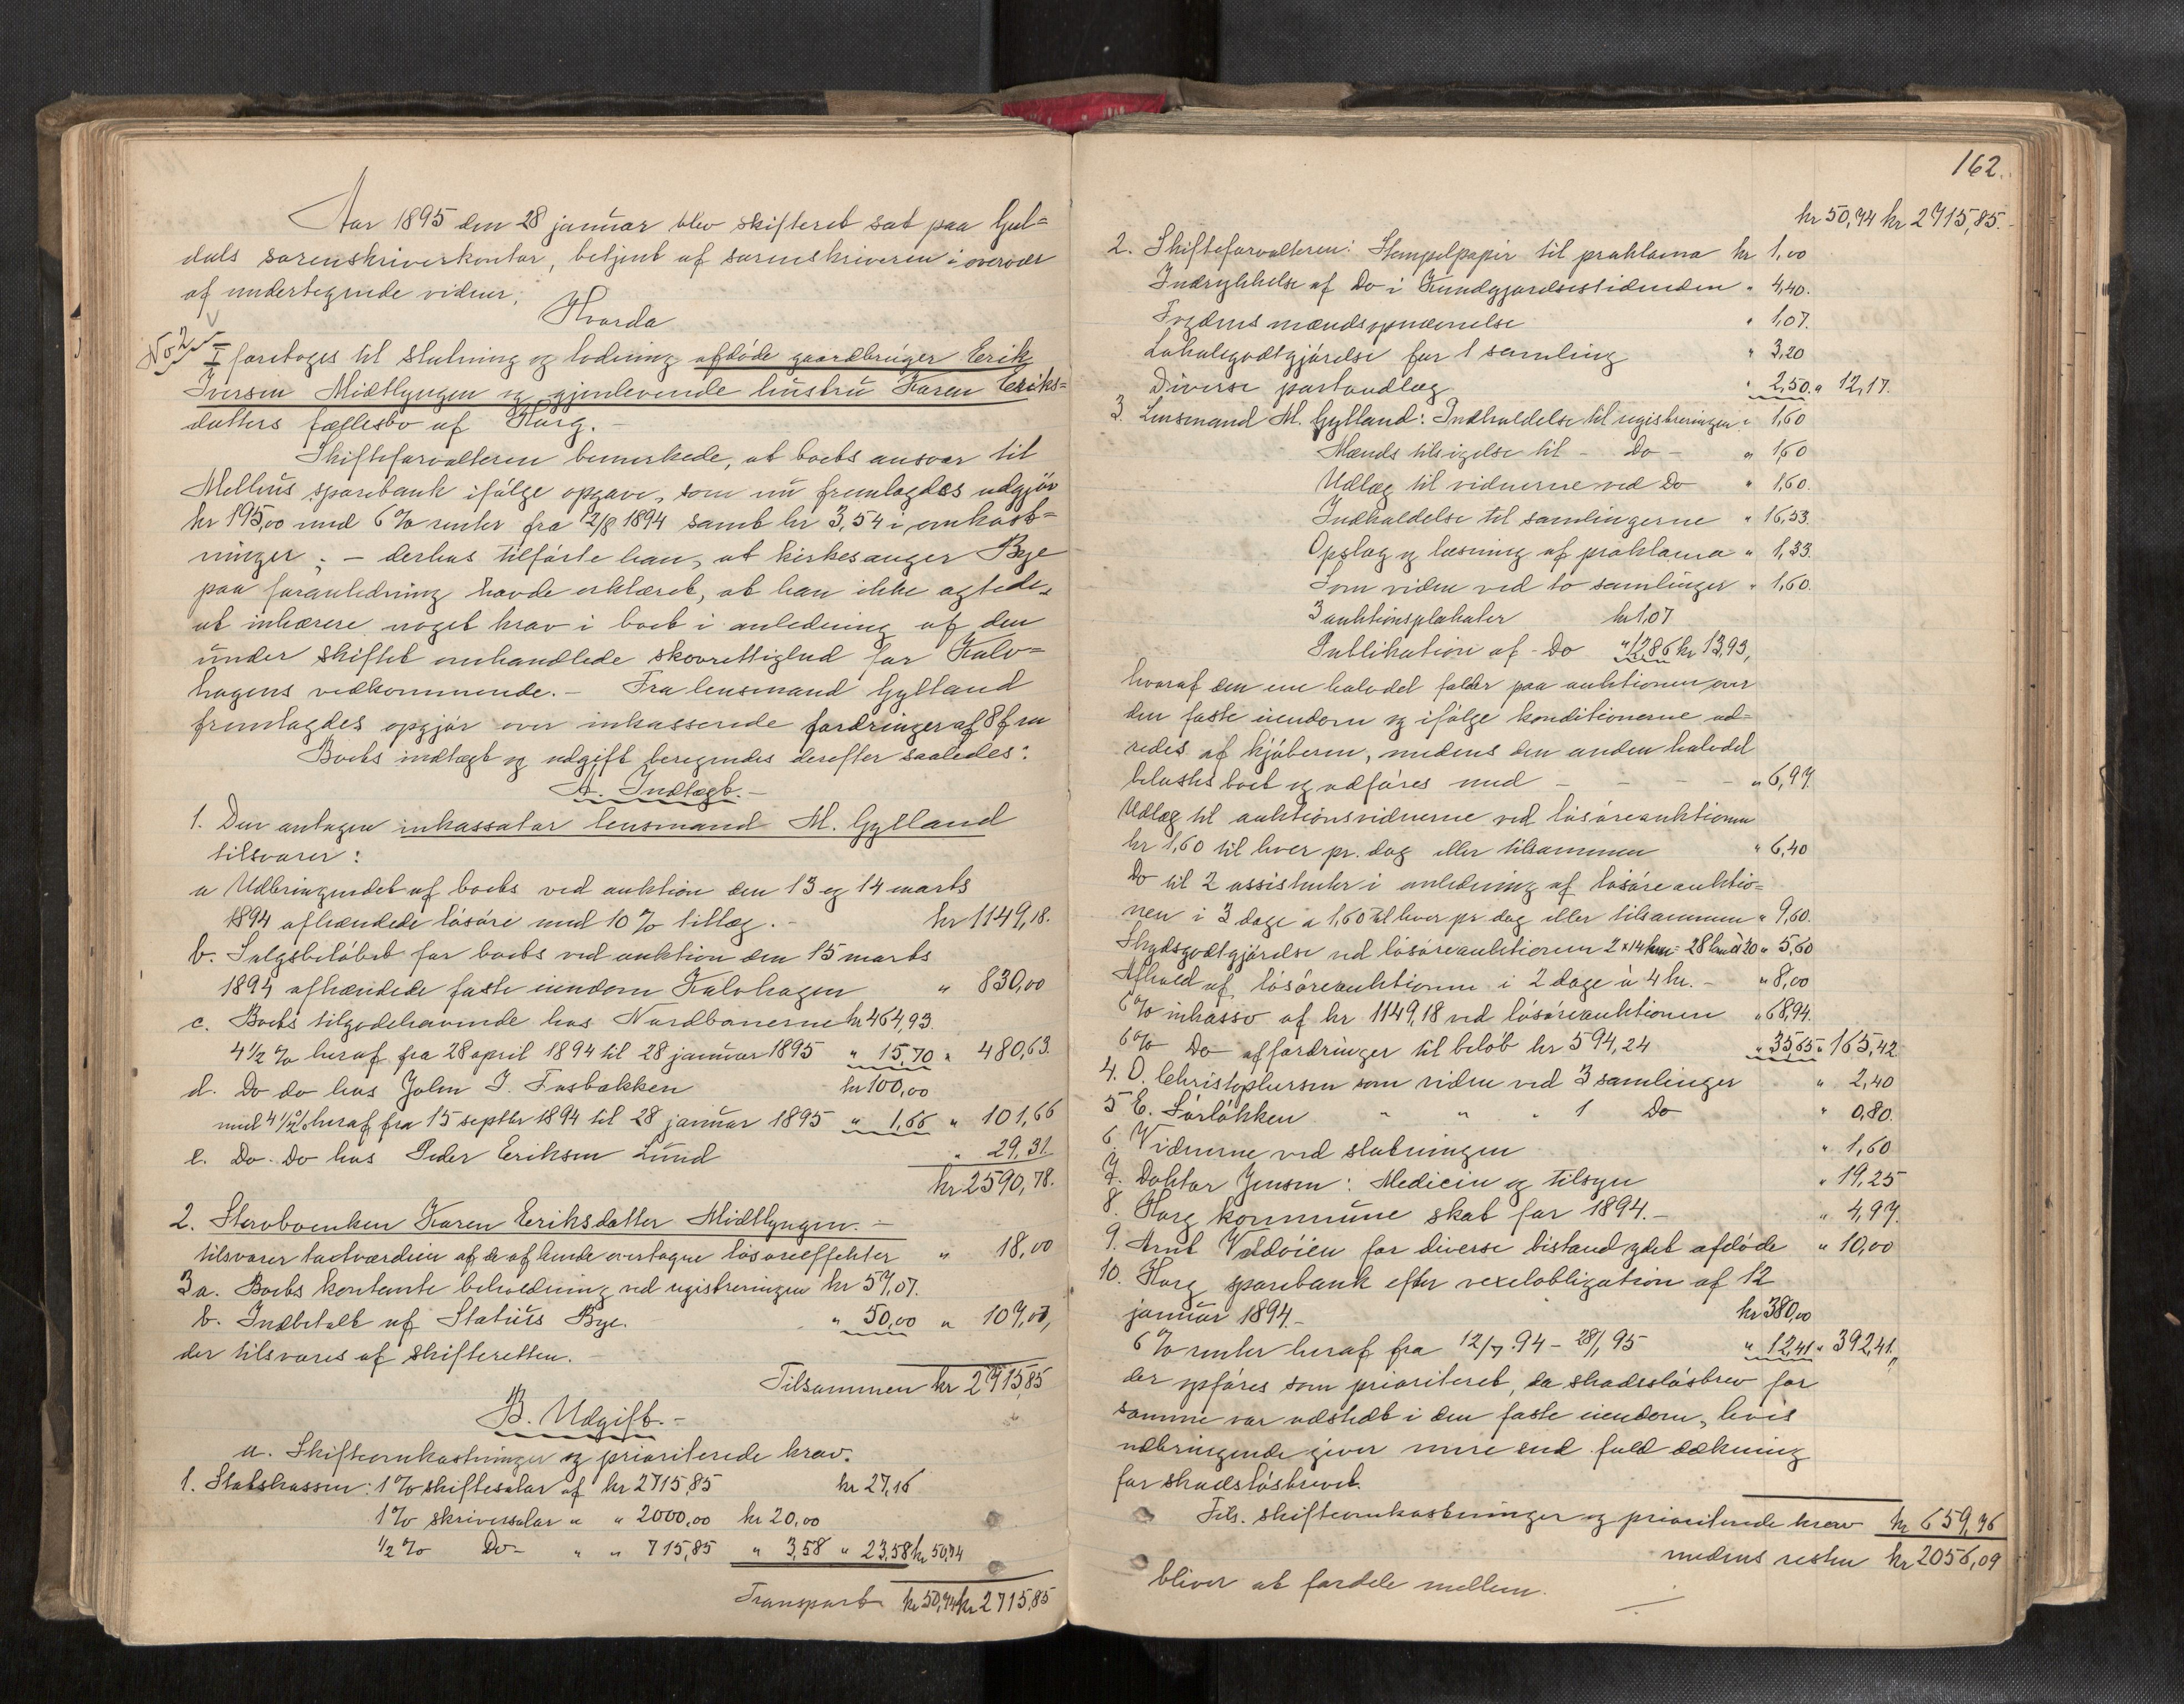 Aar 1895 den 28 januar blev skifteret sat paa Gul=
dals sorenskriverkontor, betjent af sorenskriveren i overvær
af undertegnede vidner,
Hvorda
No 2
I foretoges til slutning og lodning afdøde gaardbruger Erik
Iversen Midtlyngen og gjenlevende hustru Karen Eriks=
datters fællesbo af Horg. -
Skifteforvalteren bemerkede, at boets ansvar til
Melhus sparebank ifølge opgave, som nu fremlagdes udgjør
kr 195,00 med 6 % renter fra 12/8 1894 samt kr 3,54 i omkost=
ninger; - derhos tilførte han, at kirkesanger Bye
paa foranledning havde erklæret, at han ikke agtede
at inhærere noget krav i boet i anledning af den
under skiftet omhandlede skovrettighed for Kalv=
hagens vedkommende. - Fra lensmand Gylland
fremlagdes opgjør over inkasserede fordringer af 8 f m
Boets indtægt og udgift beregnedes derefter saaledes:
A. Indtægt. -
1. Den antagne inkassator lensmand M. Gylland
tilsvarer:
a Udbringendet af boets ved auktion den 13 og 14 marts
1894 afhændede løsøre med 10 % tillæg. - kr 1149,18.
b. Salgsbeløbet for boets ved auktion den 15 marts
1894 afhændede faste eiendom Kalvhagen " 830,00
c. Boets tilgodehavende hos Nordbanerne kr 464,93.
4 1/2 % heraf fra 28 april 1894 til 28 januar 1895 " 15,70 " 480,63.
d. Do do hos John J. Fosbakken kr 100,00
med 4 1/2 % heraf fra 15 septbr 1894 til 28 januar 1895 " 1,66 " 101,66
e. Do. Do hos Peder Eriksen Lund " 29,31
kr 2590,78.
2. Stervboenken Karen Eriksdatter Midtlyngen. -
tilsvarer taxtværdien af de af hende overtagne løsøreeffekter " 18,00
3 a. Boets kontante beholdning ved registreringen kr 57,07.
b. Indbetalt af Statius Bye. " 50,00 " 107,07,
der tilsvares af skifteretten.
Tilsammen kr 2715,85
B. Udgift. -
a. Skifteomkostninger og prioriterede krav.
1. Statskassen: 1 % skiftesalar af kr 2715,85 kr 27,16
1 % skriversalar " " 2000,00 kr 20,00
1/2 % Do - " " 715,85 " 3,58 " 23,58 kr 50,74
Transport kr 50,74 kr 2715,85
162.
kr 50,74 kr 2715,85.
2. Skifteforvalteren: Stempelpapir til proklama kr 1,00
Indrykkelse af Do i Kundgjørelsestidenden " 4,40.
Fredens mændsopnævnelse " 1,07.
Lokalegodtgjørelse for 1 samling " 3,20
Diverse portoudlæg " 2,50. " 12,17.
3. Lensmand M. Gylland: Indkaldelse til registreringen " 1,60
Mænds tilsigelse til - Do - " 1,60
Udlæg til vidnerne ved Do " 1,60.
Indkaldelse til samlingerne " 16,53.
Opslag og læsning af proklama " 1,33.
Som vidne ved to samlinger " 1,60.
3 auktionsplakater kr 1,07
Publikation af - Do " 12,86 kr 13,93,
hvoraf den ene halvdel falder paa auktionen over
den faste eiendom og ifølge konditionerne ud=
redes af kjøberen, medens den anden halvdel
belastes boet og udføres med - - - - " 6,97.
Udlæg til auktionsvidnerne ved løsøreauktionen
kr 1,60 til hver pr. dag eller tilsammen " 6,40
Do til 2 assistenter i anledning af løsøreauktio=
nen i 3 dage a 1,60 til hver pr dag eller tilsammen " 9,60.
Skydsgodtgjørelse ved løsøreauktionen 2 x 14 km = 28 km à 20 " 5,60
Afhold af løsøreauktionen i 2 dage à 4 kr. - " 8,00
6 % inkasso af kr 1149,18 ved løsøreauktionen " 68,94.
6 % Do af fordringer til beløb kr 594,24 " 35,65 " 165,42
4. O. Christophersen som vidne ved 3 samlinger " 2,40
5 E. Sørløkken " " " 1 Do " 0,80.
6. Vidnerne ved slutningen " 1,60
7. Doktor Jensen: Medicin og tilsyn " 19,25
8. Horg kommune skat for 1894. - " 4,97.
9. Arnt Valdøien for diverse bistand ydet afdøde " 10,00
10. Horg sparebank efter vexelobligation af 12
januar 1894. - kr 380,00
6 % renter heraf fra 12/7 94 - 28/1 95 " 12,41 " 392,41,
der opføres som prioriteret, da skadesløsbrev for
samme var udstedt i den faste eiendom, hvis
udbringende giver mere end fuld dækning
for skadesløsbrevet.
Tils. skifteomkostninger og prioriterede krav kr 659,76
medens resten kr 2056,09
bliver at fordele mellem.